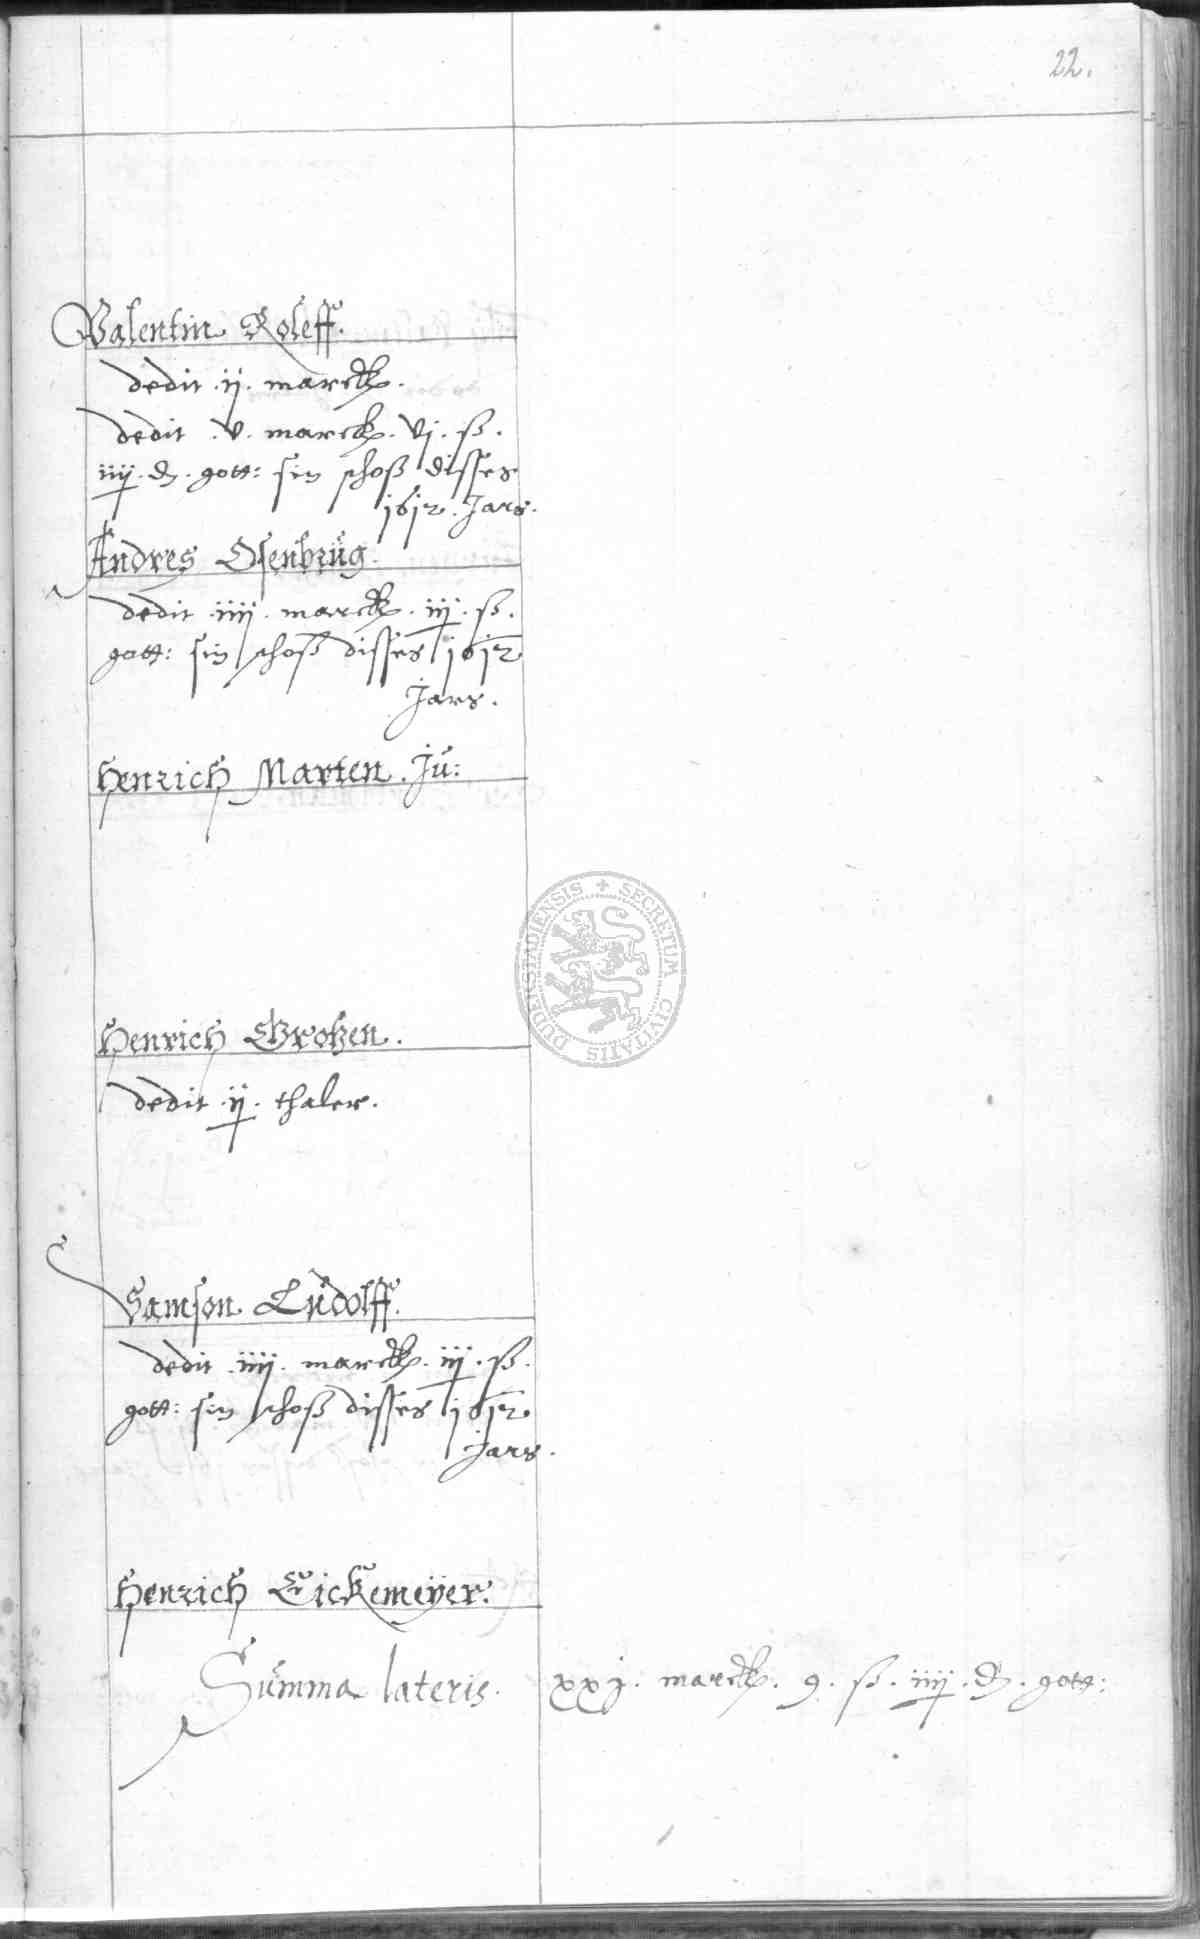 22.
Valentin Roleff.
dedit .ij. marck.
dedit .v. marck. vj. ß.
iiij. d. gott: sin schoß disses
1612. Jars.
Andres Osenbrüg.
dedit .iiij. marck. iij. ß.
gott: sin schoß disses 1612
Jars.
Henrich Marten. Jü:
Henrich Grotzen.
dedit .ij. thaler.
Samson Lüdolff.
dedit .iiij. marck. iij. ß.
gott: sin schoß disses 1612
Jars.
Henrich Eickemeÿer.
Sūmma lateris. xxj. marck. 9. ß. iiij. d. gott:
SECRETUM CIVITATIS DUDERSTADIENSIS